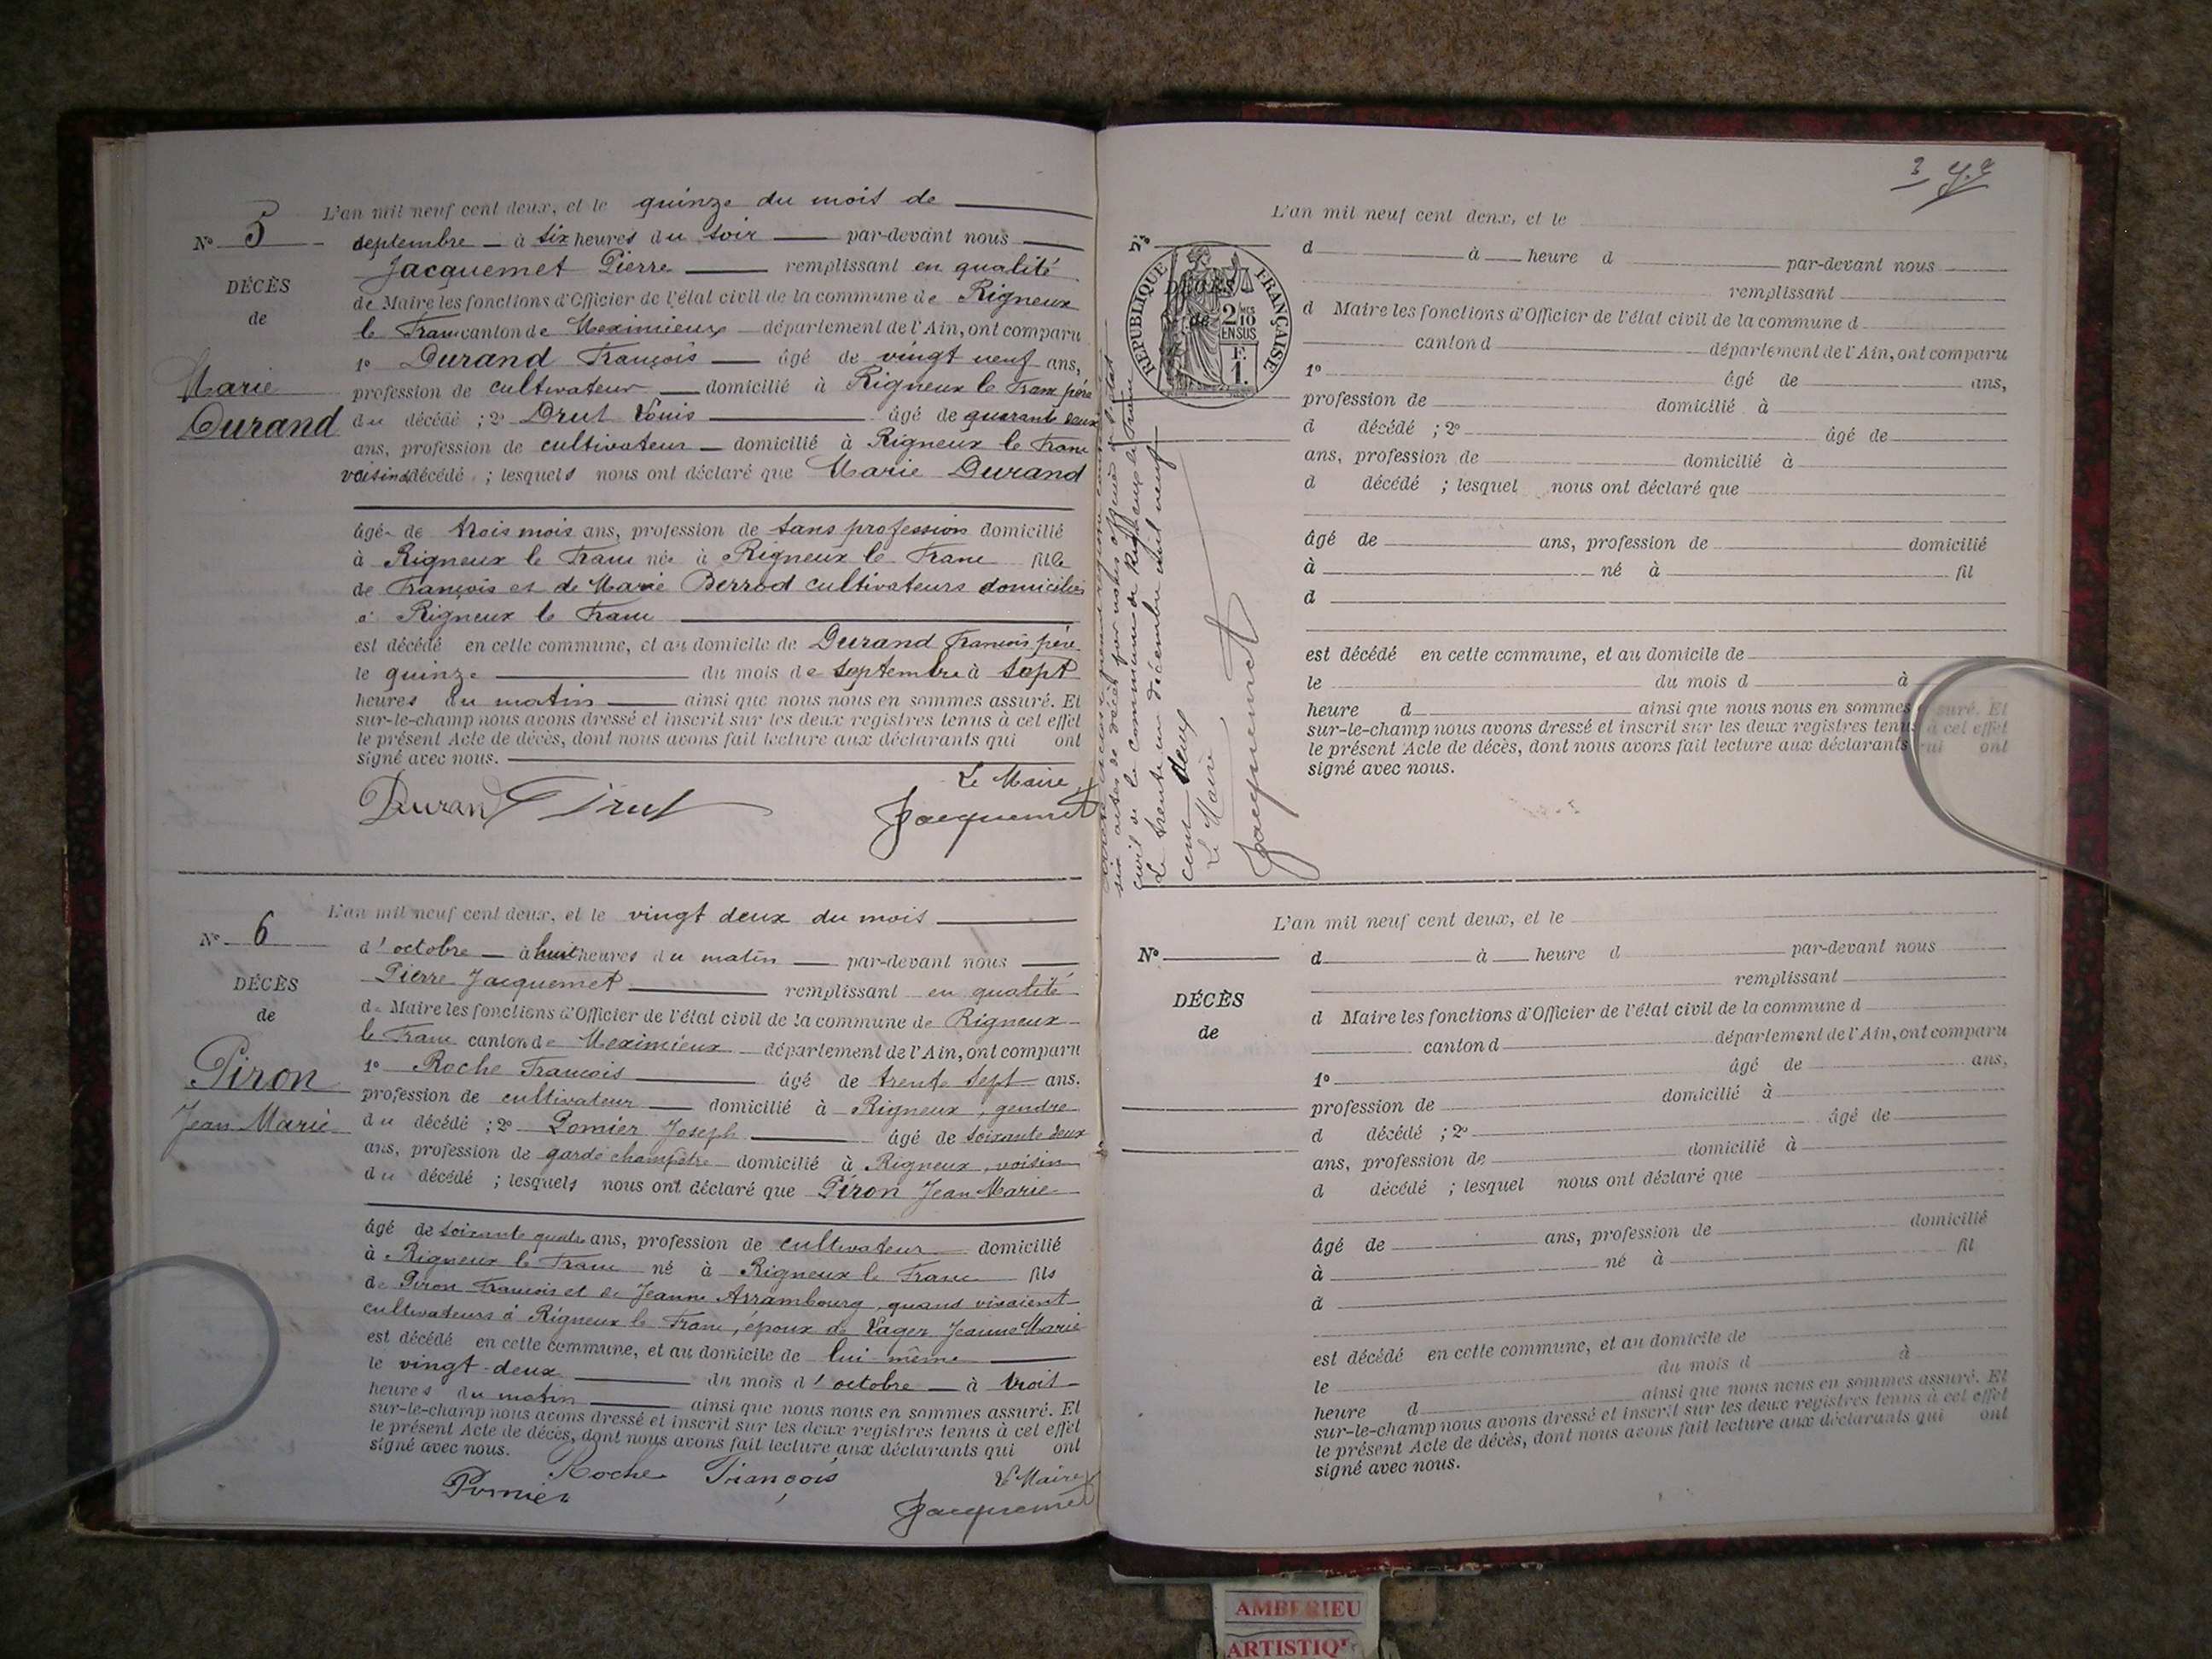 L'an mil neuf cent deux, et le quinze du mois de
N° 5
septembre à six heures du soir par-devant nous
Jacquemet Pierre remplissant en qualité
DÉCÈS
de
de Maire les fonctions d'Officier de l'état civil de la commune de Rigneux
le Franc canton de Meximieux département de l'Ain, ont comparu
1° Durand François âgé de vingt neuf ans,
Marie
Durand
profession de cultivateur domicilié à Rigneux le Franc père
du décédé ; 2° Drut Louis âgé de quarante deux
ans, profession de cultivateur domicilié à Rigneux le Franc
voisin du décédé ; lesquels nous ont déclaré que Marie Durand
âgée de trois mois ans, profession de sans profession domicilié
à Rigneux le Franc née à Rigneux le Franc fille
de François et de Marie Berrod cultivateurs domiciliés
à Rigneux le Franc
est décédé en cette commune, et au domicile de Durand François père
le quinze du mois de septembre à sept
heures du matin ainsi que nous nous en sommes assuré. Et
sur-le-champ nous avons dressé et inscrit sur les deux registres tenus à cet effet
le présent Acte de décès, dont nous avons fait lecture aux déclarants qui ont
signé avec nous.
Le Maire
Durand Drut Jacquemet
L'an mil neuf cent deux, et le vingt deux du mois
N° 6
d'octobre à huit heures du matin par-devant nous
Pierre Jacquemet remplissant en qualité
DÉCÈS
de
de Maire les fonctions d'Officier de l'état civil de la commune de Rigneux
le Franc canton de Meximieux département de l'Ain, ont comparu
1° Roche François âgé de trente sept ans.
Piron
Jean Marie
profession de cultivateur domicilié à Rigneux, gendre
du décédé ; 2° Pomier Joseph âgé de soixante deux
ans, profession de garde champêtre domicilié à Rigneux, voisin
du décédé ; lesquels nous ont déclaré que Piron Jean Marie
âgé de soixante quatre ans, profession de cultivateur domicilié
à Rigneux le Franc né à Rigneux le Franc fils
de Piron François et de Jeanne Arrambourg, quand vivaient
cultivateurs à Rigneux le Franc, époux de Vager Jeanne Marie
est décédé en cette commune, et au domicile de lui même
le vingt-deux du mois d'octobre à trois
heures du matin ainsi que nous nous en sommes assuré. Et
sur-le-champ nous avons dressé et inscrit sur les deux registres tenus à cet effet
le présent Acte de décès, dont nous avons fait lecture aux déclarants qui ont
signé avec nous.
Roche François
Le Maire
Pomier
Jacquemet
L'an mil neuf cent deux, et le
N°
d à heure d par-devant nous
remplissant
DÉCÈS
de
d Maire les fonctions d'Officier de l'état civil de la commune d
canton d département de l'Ain, ont comparu
1° âgé de ans,
profession de domicilié à
d décédé ; 2° âgé de
ans, profession de domicilié à
d décédé ; lesquel nous ont déclaré que
âgé de ans, profession de domicilié
à né à fil
d
est décédé en cette commune, et au domicile de
le du mois d à
heure d ainsi que nous nous en sommes assuré. Et
sur-le-champ nous avons dressé et inscrit sur les deux registres tenus à cet effet
le présent Acte de décès, dont nous avons fait lecture aux déclarants qui ont
signé avec nous.
RÉPUBLIQUE FRANÇAISE
2/10
EN SUS
F.
1.
six actes de décès par nous officier de l'état
civil de la commune de Rigneux le Franc
Le trente un décembre mil neuf
cent deux
Le Maire
Jacquemet
L'an mil neuf cent deux, et le
N°
d à heure d par-devant nous
remplissant
DÉCÈS
de
d Maire les fonctions d'Officier de l'état civil de la commune d
canton d département de l'Ain, ont comparu
1° âgé de ans,
profession de domicilié à
d décédé ; 2° âgé de
ans, profession de domicilié à
d décédé ; lesquel nous ont déclaré que
âgé de ans, profession de domicilié
à né à fil
d
est décédé en cette commune, et au domicile de
le du mois d à
heure d ainsi que nous nous en sommes assuré. Et
sur-le-champ nous avons dressé et inscrit sur les deux registres tenus à cet effet
le présent Acte de décès, dont nous avons fait lecture aux déclarants qui ont
signé avec nous.
AMBERIEU
ARTISTIQ